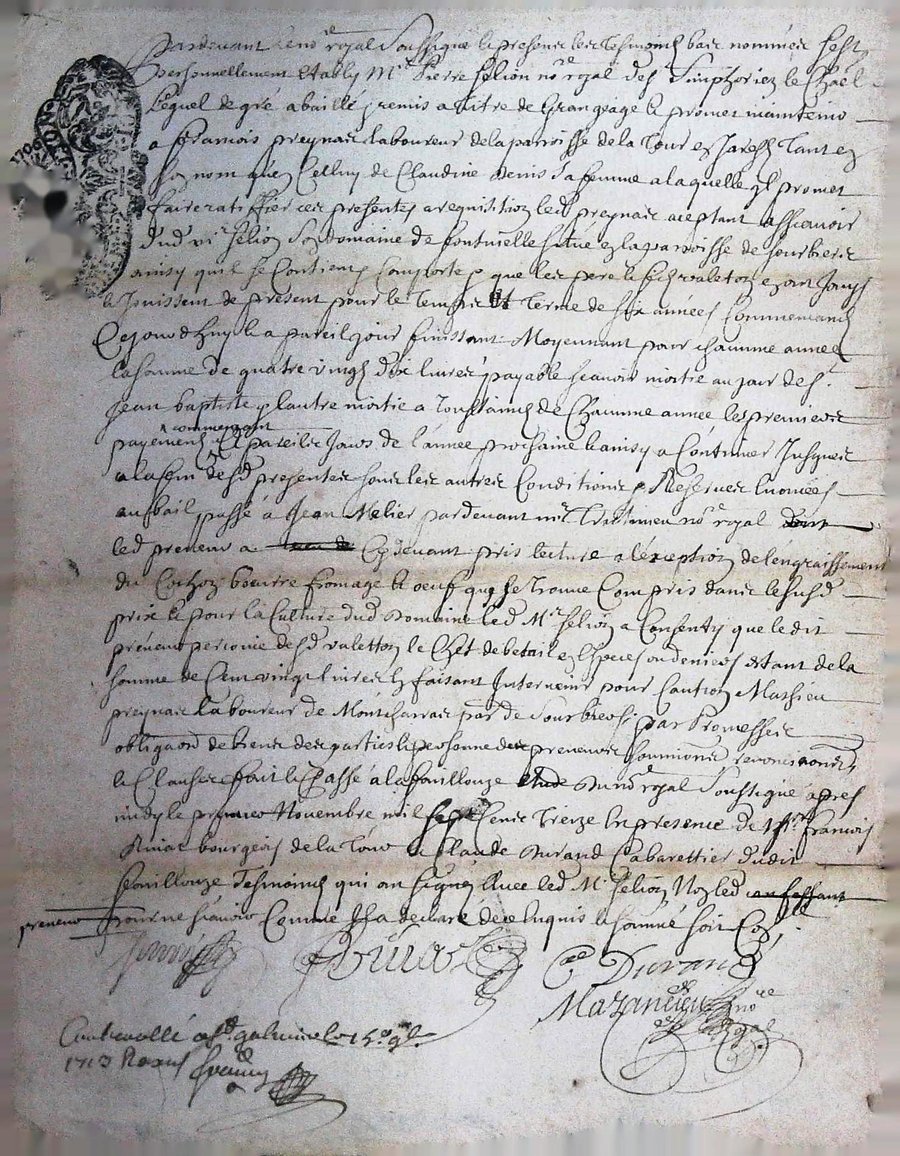 Pardevant le no.re royal Soussigné & presents les Tesmoins bas nommés fust
personnellement Etably M.e Pierre Jelion no.re royal de S.t Simphorien le Chael
Lequel de gré a baillé & remis a titre de Grangeage & promet maintenir
a francois preynat laboureur de la parroisse de la Tour en Jarests Tant en
son nom que Celluy de Claudine Denis sa femme a laquelle il promet
faire ratiffier ces presentes a requisition led preynat aceptant assçavoir
dud M.e Jelion Son domaine de situé en la parroisse de Sourbiers
ainsy quil se Contient Comporte & que les pere & fils valetton
& Jouissent de present pour le Temps & Terme de Six années Commencans
Cejourdhuy & a pareil jour finissant Moyennant pour chacunne année
la somme de quatre vingts dix livres payable scavoir moitié au jour de S.t
Jean baptiste & lautre moitié a Toussaincts de Chacunne année les premiers
payements commençant Et pareils Jours de l'année prochaine & ainsy a Continuer Jusques
a la fin desd presentes sous les autres Conditions & Reserves Enoncées
au bail passé à Jean Melier pardevant m.e no.re royal dont
led preneur a Cydevant pris lecture a l'exception de l'engraissement
du Cochon beurre fromage & oeuf qui se Trouve Compris dans le susd
prix & pour la Culture dud Domaine led M.e Jelion a Consenty que ledit
preneur desd valetton le Chet de betail en Especes ou deniers Estant de la
somme de Cent vingt livres Et faisant Intervenir pour Caution Mathieu
preynat laboureur de Montcharrat par de Sourbiers par Promesses
obliga.ons de biens des parties & personne des preneurs soumissions renonciations
& Clauses fait & Passé a la fouillouze Etude du no.re royal Soussigné apres
midy le premier Novembre mil sept Cents Treize En presence de S.r francois
bourgeois de la Tour & Claude Durand Cabarettier dudit
feouillouze Tesmoins qui ont Signé Avec led M.e Jelion Non led
preneur pour ne scavoir Comme Il a declaré de ce Enquis & sommé
Jelion
C. Durand
Mazancieu no.re
Royal
Controllé a S.t galmier le 15.e 9.bre
1713 Receu